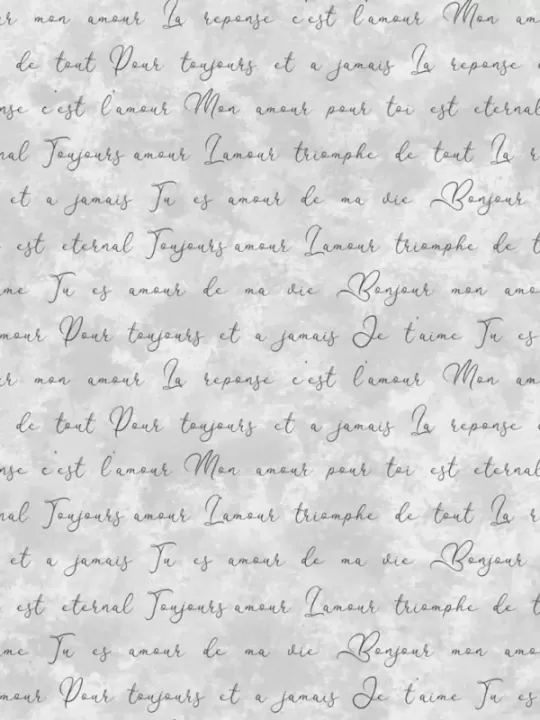 mon amour La reponse c'est l'amour Mon am
de tout Pour toujours et a jamais La reponse
nse c'est l'amour Mon amour pour toi est eternal
nal Toujours amour Lamour triomphe de tout La r
et a jamais Tu es amour de ma vie Bonjour
est eternal Toujours amour Lamour triomphe de t
me Tu es amour de ma vie Bonjour mon amo
mour Pour toujours et a jamais Je t'aime Tu es
ur mon amour La reponse c'est l'amour Mon am
de tout Pour toujours et a jamais La reponse
nse c'est l'amour Mon amour pour toi est eternal
nal Toujours amour Lamour triomphe de tout La r
et a jamais Tu es amour de ma vie Bonjour
est eternal Toujours amour Lamour triomphe de t
me Tu es amour de ma vie Bonjour mon amo
mour Pour toujours et a jamais Je t'aime Tu es